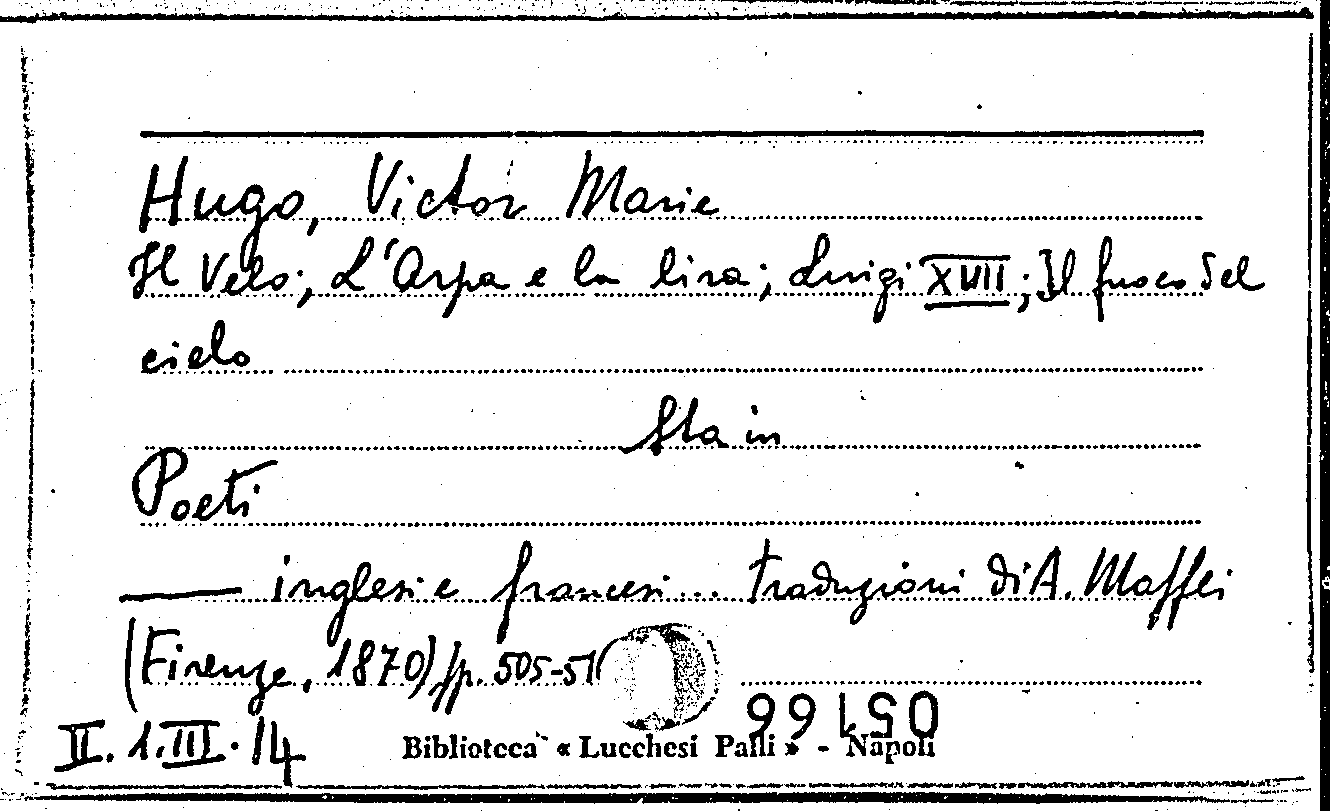 Hugo, Victor Marie
Il Velo; L'Arpa e la lira; Luigi XVII; Il fuoco del
cielo
Sta in
Poeti
—— inglesi e francesi... traduzioni di A. Maffei
(Firenze, 1870) pp. 505-51
II. 1. III. 14
Biblioteca « Lucchesi Palli » - Napoli
05166